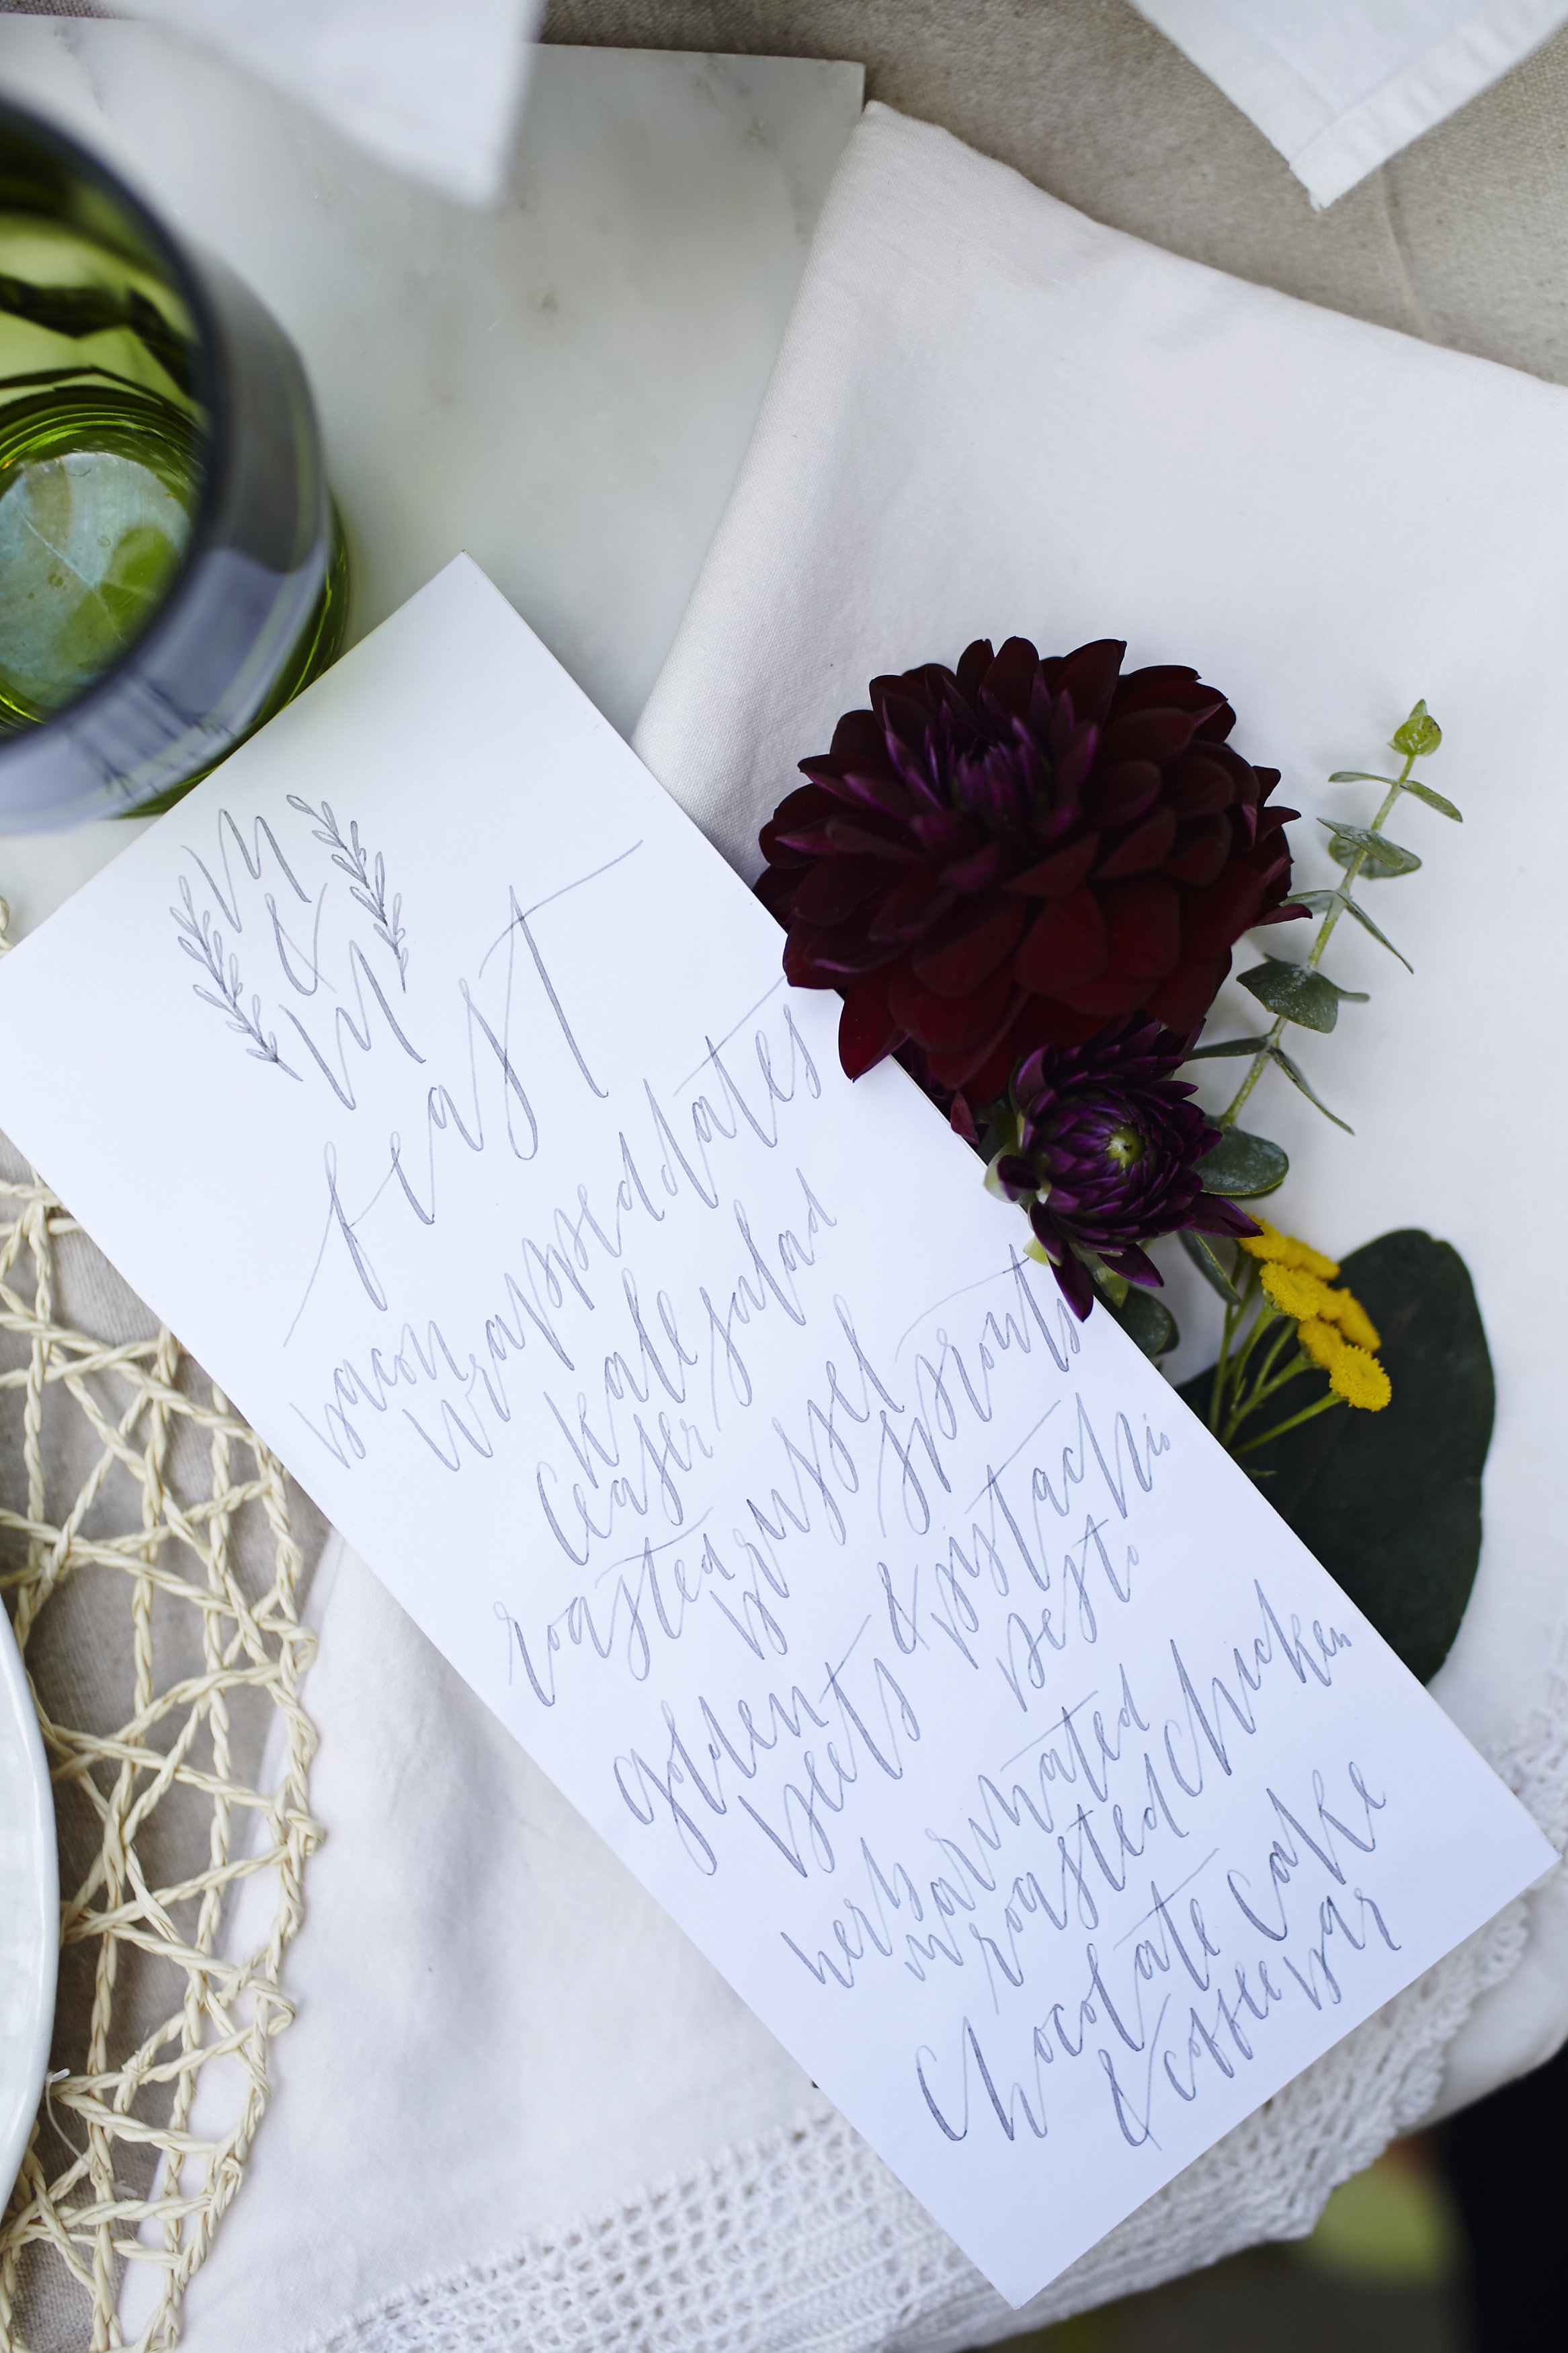 M
&
M
feast
bacon
wrapped dates
kale salad
ceaser
roasted brussel sprouts
golden
beets & pistachio
pesto
herb
marinated
roasted chicken
chocolate cake
& coffee bar